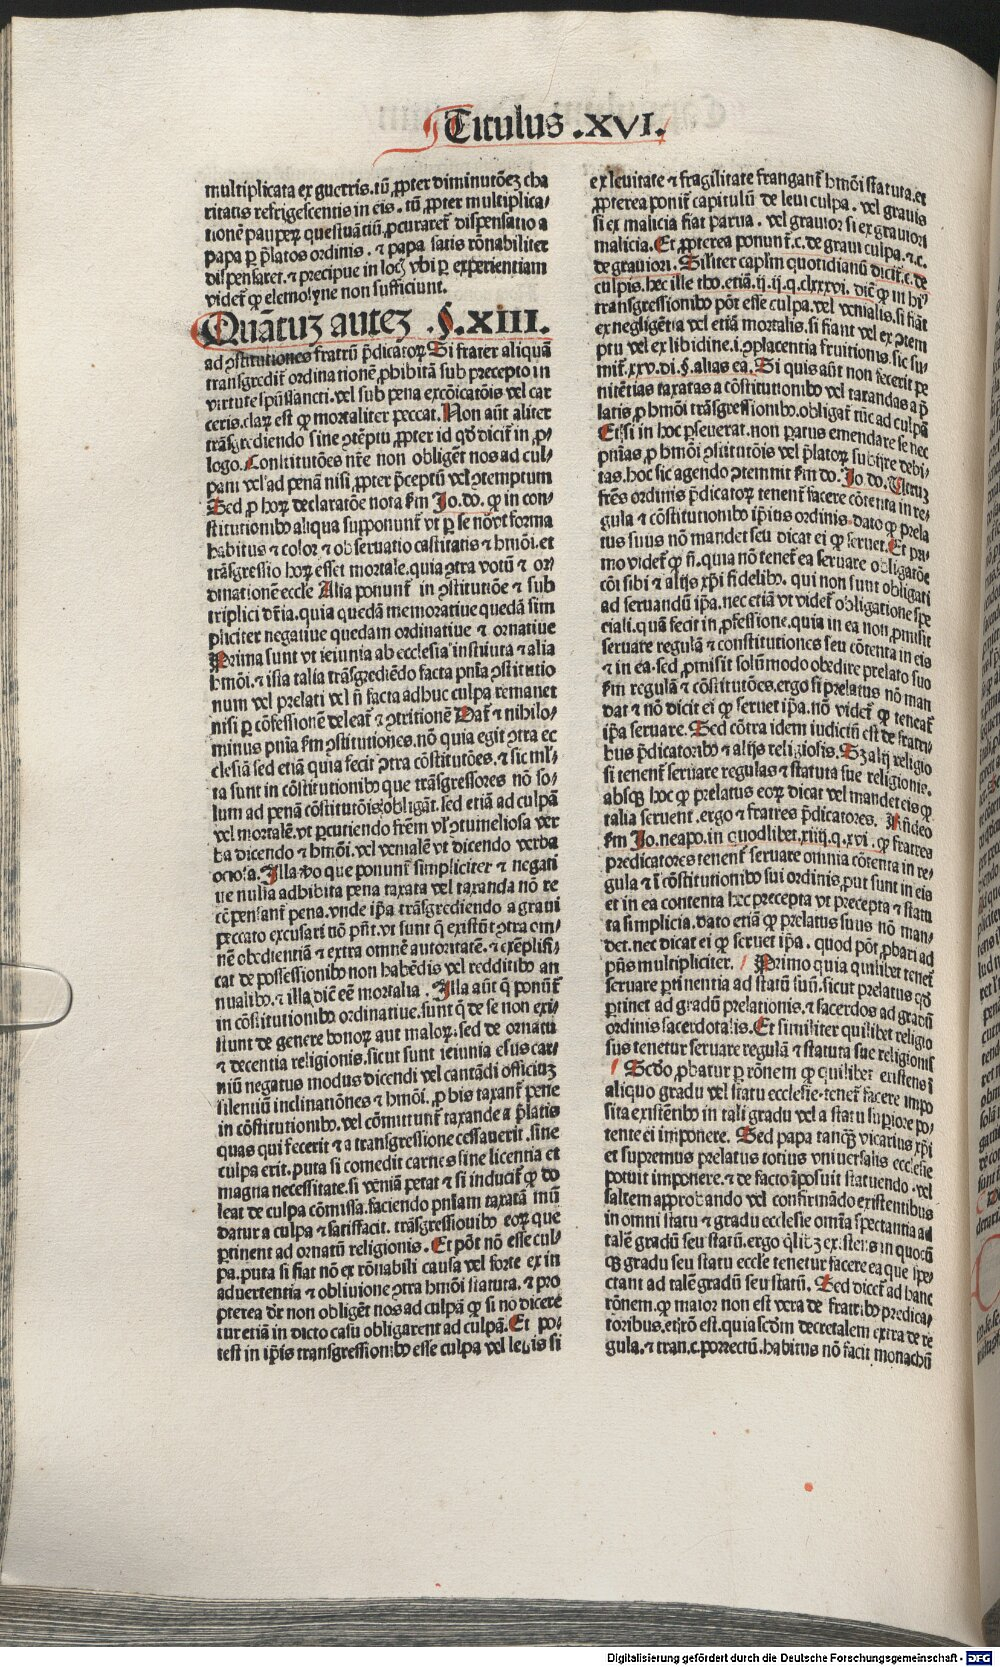 Titulus .XVI.
multiplicata ex guerris. tū ꝓpter diminutōeꝫ cha
ritatis refrigescentis in eis. tū ꝓpter multiplica-
tionē pauperꝝ questuātiū ꝓcuraret᷑ dispensatio a
papa ꝑ p̄latos ordinis. ⁊ papa satis rōnabiliter
dispensaret. ⁊ precipue in locꝭ vbi ꝑ experientiam
videt᷑ ꝙ elemosyne non sufficiunt.
Quātuꝫ auteꝫ .§.XIII.
ad ꝯstitutiones fratrū p̄dicatoꝝ Si frater aliquā
transgredit᷑ ordinationē ꝓhibitā sub precepto in
virtute spūssancti. vel sub pena excōicatōis vel car
ceris. claꝝ est ꝙ mortaliter peccat. Non aūt aliter
trāsgrediendo sine ꝯtēptu ꝓpter id qd̄ dicit᷑ in ꝓ-
logo. Constitutōes nr̄e non obligēt nos ad cul-
pam vel ad penā nisi ꝓpter p̄ceptū vel ꝯtemptum
Sed ꝓ hoꝝ declaratōe nota ẜm Jo. do. ꝙ in con-
stitutionibꝰ aliqua supponunt᷑ vt ꝑ se nōrt forma
habitus ⁊ color ⁊ obseruatio castitatis ⁊ hmōi. et
trāsgressio hoꝝ esset mortale. quia ꝯtra votū ⁊ or-
dinationē eccle Alia ponunt᷑ in ꝯstitutiōe ⁊ sub
triplici dr̄ia. quia quedā memoratiue quedā sim
pliciter negatiue quedam ordinatiue ⁊ ornatiue
Prima sunt vt ieiunia ab ecclesia instituta ⁊ alia
hmōi. ⁊ ista talia trāsgrediēdo facta pn̄ia ꝯstitutio
num vel prelati vel n̄ facta adhuc culpa remanet
nisi ꝑ cōfessionē deleat᷑ ⁊ ꝯtritionē Dat᷑ ⁊ nihilo-
minus pn̄ia ẜm ꝯstitutiones. nō quia egit ꝯtra ec
clesiā sed etiā quia fecit ꝯtra cōstitutōes. ⁊ sic ml̄-
ta sunt in cōstitutionibꝰ que trāsgressores nō so-
lum ad penā cōstitutōis obligāt. sed etiā ad culpā
vel mortalē. vt ꝑcutiendo frēm vl̓ ꝯtumeliosa ver
ba dicendo ⁊ hmōi. vel venialē vt dicendo verba
ociosa. Illa v̓o que ponunt᷑ simpliciter ⁊ negati
ue nulla adhibita pena taxata vel taxanda nō re
cōpensant᷑ pena. vnde ip̄a trāsgrediendo a graui
peccato excusari nō pn̄t. vt sunt q̄ existūt ꝯtra om-
nē obedientiā ⁊ extra omnē autoritatē. ⁊ exēplifi-
cat de possessionibꝰ non habēdis vel redditibꝰ an
nualibꝰ. ⁊ illa dic̄ eē mortalia. Illa aūt q̄ ponūt᷑
in cōstitutionibꝰ ordinatiue. sunt q̄ de se non exi-
stunt de genere bonoꝝ aut maloꝝ. sed de ornatu
⁊ decentia religionis. sicut sunt ieiunia esus car-
niū negatus modus dicendi vel cantādi officiuꝫ
silentiū inclinationes ⁊ hmōi. ꝓ his taxant᷑ pene
in cōstitutionibꝰ. vel cōmittunt᷑ taxande a p̄latis
quas qui fecerit ⁊ a transgressione cessauerit. sine
culpa erit. puta si comedit carnes sine licentia et
magna necessitate. si veniā petat ⁊ si inducit᷑ ꝙ do
leat de culpa cōmissa. faciendo pn̄iam taxatā mū
datur a culpa ⁊ satisfacit. trāsgressiouibꝰ eoꝝ que
ꝑtinent ad ornatū religionis. Et pōt nō esse cul-
pa. puta si fiat nō ex rōnabili causa vel forte ex in
aduertentia ⁊ obliuione ꝯtra hmōi statuta. ⁊ pro
pterea dr̄ non obligēt nos ad culpā ꝙ si nō dicere
tur etiā in dicto casu obligarent ad culpā. Et po-
test in ip̄is transgressionibꝰ esse culpa vel leuis si
ex leuitate ⁊ fragilitate frangant᷑ hmōi statuta. et
ꝓpterea ponit᷑ capitulū de leui culpa. vel grauis
si ex malicia fiat parua. vel grauior si ex grauiori
malicia. Et ꝓpterea ponunt᷑. c. de graui culpa. ⁊. c.
de grauiori. Siliter caplm̄ quotidianū dicit᷑. c. de
culpis. hec ille tho. etiā. ij. ij. q. clxxxvi. dic̄ ꝙ in hi-
transgressionibꝰ pōt esse culpa. vel venialis. si fiāt
ex negligētia vel etiā mortalis. si fiant vel ex ꝯtem
ptu vel ex libidine. i. ꝯplacentia fruitionis. sic su-
mit᷑. xxv. di. §. alias ea. Si quis aūt non fecerit pe
nitētias taxatas a cōstitutionibꝰ vel taxandas a p̄
latis. ꝓ hmōi trāsgressionibꝰ. obligat᷑ tūc ad culpā
Et si in hoc ꝑseuerat. non paratus emendare se nec
pn̄ias. ꝓ hmōi ꝯstitutōis vel p̄latoꝝ subijre debi-
tas. hoc sic agendo ꝯtemnit ẜm do. Jo. do. Utruꝫ
frēs ordinis p̄dicatoꝝ tenent᷑ facere cōtenta in re-
gula ⁊ cōstitutionibꝰ ip̄ius ordinis. dato ꝙ prela
tus suus nō mandet seu dicat ei ꝙ seruet. Et pri-
mo videt᷑ ꝙ n̄. quia nō tenet᷑ ea seruare obligatōe
cōi sibi ⁊ alijs xp̄i fidelibꝰ. qui non sunt obligati
ad seruandū ip̄a. nec etiā vt videt᷑ obligatione spe
ciali. quā fecit in ꝓfessione. quia in ea non ꝓmisit
seruare regulā ⁊ constitutiones seu cōtenta in eis
⁊ in ea. sed ꝓmisit solūmodo obedire prelato suo
ẜm regulā ⁊ cōstitutōes. ergo si prelatus nō man
dat ⁊ nō dicit ei ꝙ seruet ip̄a. nō videt᷑ ꝙ teneat᷑
ip̄a seruare. Sed cōtra idem iudiciū est de fratri-
bus p̄dicatoribꝰ ⁊ alijs religiosis. Sꝫ alij religio
si tenent᷑ seruare regulas ⁊ statuta sue religionis.
absqꝫ hoc ꝙ prelatus eoꝝ dicat vel mandet eis ꝙ
talia seruent. ergo ⁊ fratres p̄dicatores. Rn̄deo
ẜm Jo. neapo. in quodlibet. xiiij. q. xvi. ꝙ fratres
predicatores tenent᷑ seruare omnia cōtenta in re-
gula ⁊ ī cōstitutionibꝰ sui ordinis. put sunt in eis
et in ea contenta hec precepta vt precepta ⁊ statu
ta simplicia. dato etiā ꝙ prelatus suus nō man-
det. nec dicat ei ꝙ seruet ip̄a. quod pōt ꝓbari ad
pn̄s multipliciter. Primo quia quilibet tenet᷑
seruare ꝑtinentia ad statū suū. sicut prelatus qd̄
ꝑtinet ad gradū prelationis. ⁊ sacerdos ad gradū
ordinis sacerdotalis. Et similiter quilibet religio
sus tenetur seruare regulā ⁊ statuta sue religionis
Scd̄o ꝓbatur ꝑ rōnem ꝙ quilibet existens ī
aliquo gradu vel statu ecclesie. tenet᷑ facere impo
sita existētibꝰ in tali gradu vel a statu supiore po-
tente ei imponere. Sed papa tanqꝫ vicarius xp̄i
et supremus prelatus totius vniuersalis ecclesie
potuit imponere. ⁊ de facto īposuit statuendo. vel
saltem approbando vel confirmādo existentibus
in omni statu ⁊ gradu ecclesie om̄ia spectantia ad
talē gradū seu statū. ergo q̄libꝫ existens in quocū
qꝫ gradu seu statu eccle tenetur facere ea que spe-
ctant ad talē gradū seu statū. Sed dicet᷑ ad hanc
rōnem. ꝙ maior non est vera de fratribꝰ predica-
toribus. et rō est. quia scd̄m decretalem extra de re
gula. ⁊ tran. c. porrectū. habitus nō facit monachū
Digitalisierung gefördert durch die Deutsche Forschungsgemeinschaft - DFG